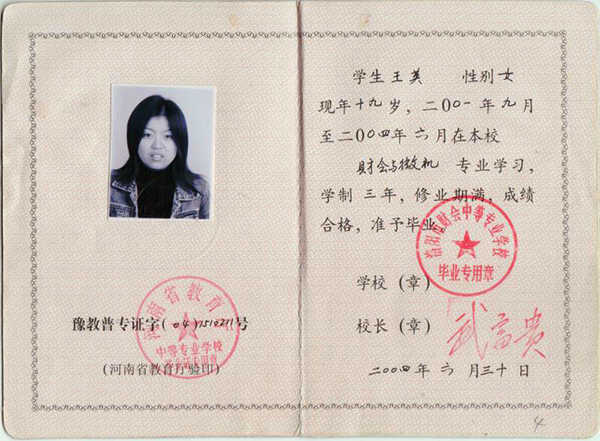 豫教普专证字(04)7510211号
(河南省教育厅验印)
河南省教育厅
中等专业学校
学生 王英 性别 女
现年十九岁，二00一年九月
至二00四年六月在本校
财会与微机 专业学习，
学制 三年，修业期满，成绩
合格，准予毕业。
财会中等专业学校
毕业专用章
学校（章）
校长（章）
武富贵
二00四年 六 月三十日
4